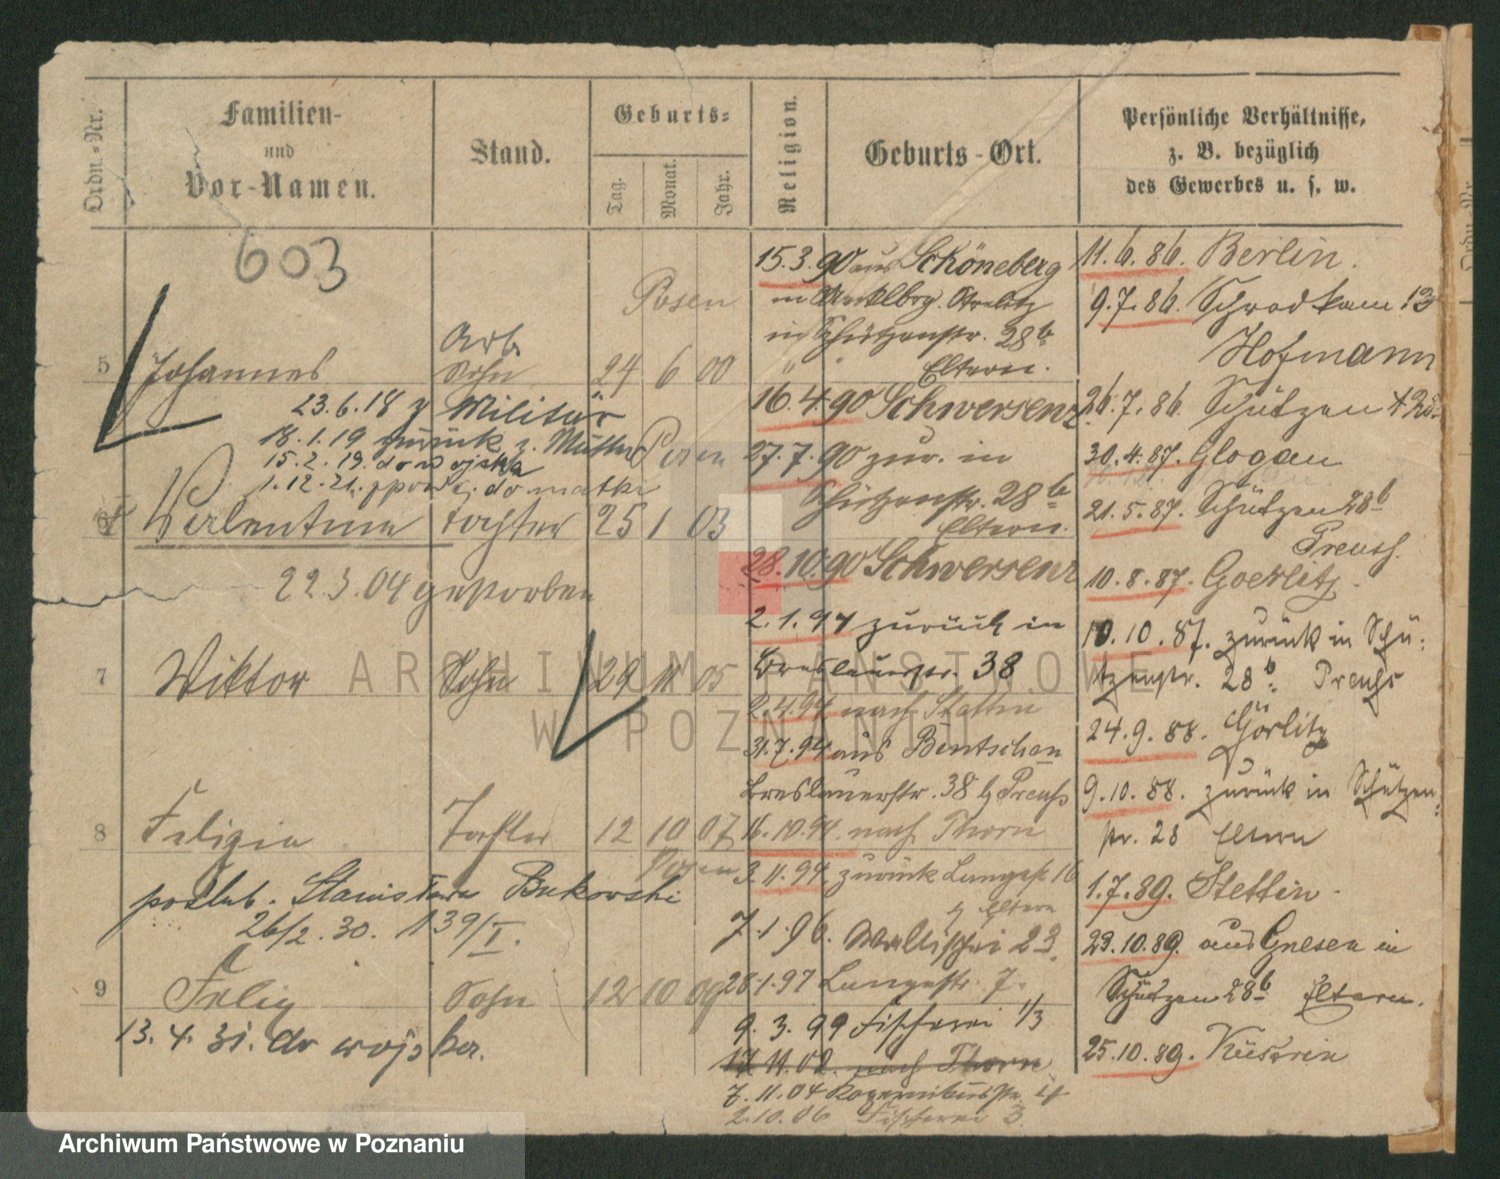 Ordn.-Nr.
Familien-
und
Vor-Namen.
Stand.
Geburts-
Tag.
Monat.
Jahr.
Religion.
Geburts-Ort.
Persönliche Verhältnisse,
z. B. bezüglich
des Gewerbes u. s. w.
603
Posen
Arb.
5 Johannes Sohn 24 6 00
23.6.18 z Militär
18.1.19 zurück z. Mutter
15.2.19. do wojska
1.12.21. do matki
Posen
6 Valentine Tochter 25 1 03
22 3.04 gestorben
7 Wiktor Sohn 29 11 05
8 Feligia Tochter 12 10 07
Posen
poślub. Stanisława Bukowski
26/2.30. 139/I.
9 Felix Sohn 12 10 09
13.4.31. do wojska.
15.3.90 aus Schöneberg
in Mecklbrg. Strelitz
in Schützenstr. 28b
Eltern.
16.4.90 Schwersenz
27.7.90 zur. in
Schützenstr. 28b
Eltern.
28.10.90 Schwersenz
2.1.94 zurück in
Breslauerstr. 38
2.4.94 nach Stettin
31.7.94 aus Bentschen
Breslauerstr. 38 b Preuß
16.10.94 nach Thorn
3.11.94 zurück Langestr. 16
b Eltern
7.1.96. Wallischei 23.
28.1.97 Langestr. 7.
9.3.99 Fischerei 1/3
17.11.02. nach Thorn
7.11.04 Kopernikusstr.
2.10.06 Fischerei 3
11.6.86. Berlin.
9.7.86. Schrodkam 13
Hofmann
26.7.86. Schützen
30.4.87. Glogau
21.5.87. Schützen 28b
Preuss.
10.8.87. Goerlitz.
10.10.87. zurück in Schü-
tzenstr. 28b. Preuß
24.9.88. Görlitz
9.10.88. zurück in Schützen-
str. 28 Eltern
1.7.89. Stettin.
29.10.89. aus Gnesen in
Schützen 28b Eltern.
25.10.89. Küstrin
ARCHIWUM PAŃSTWOWE
W POZNANIU
Archiwum Państwowe w Poznaniu